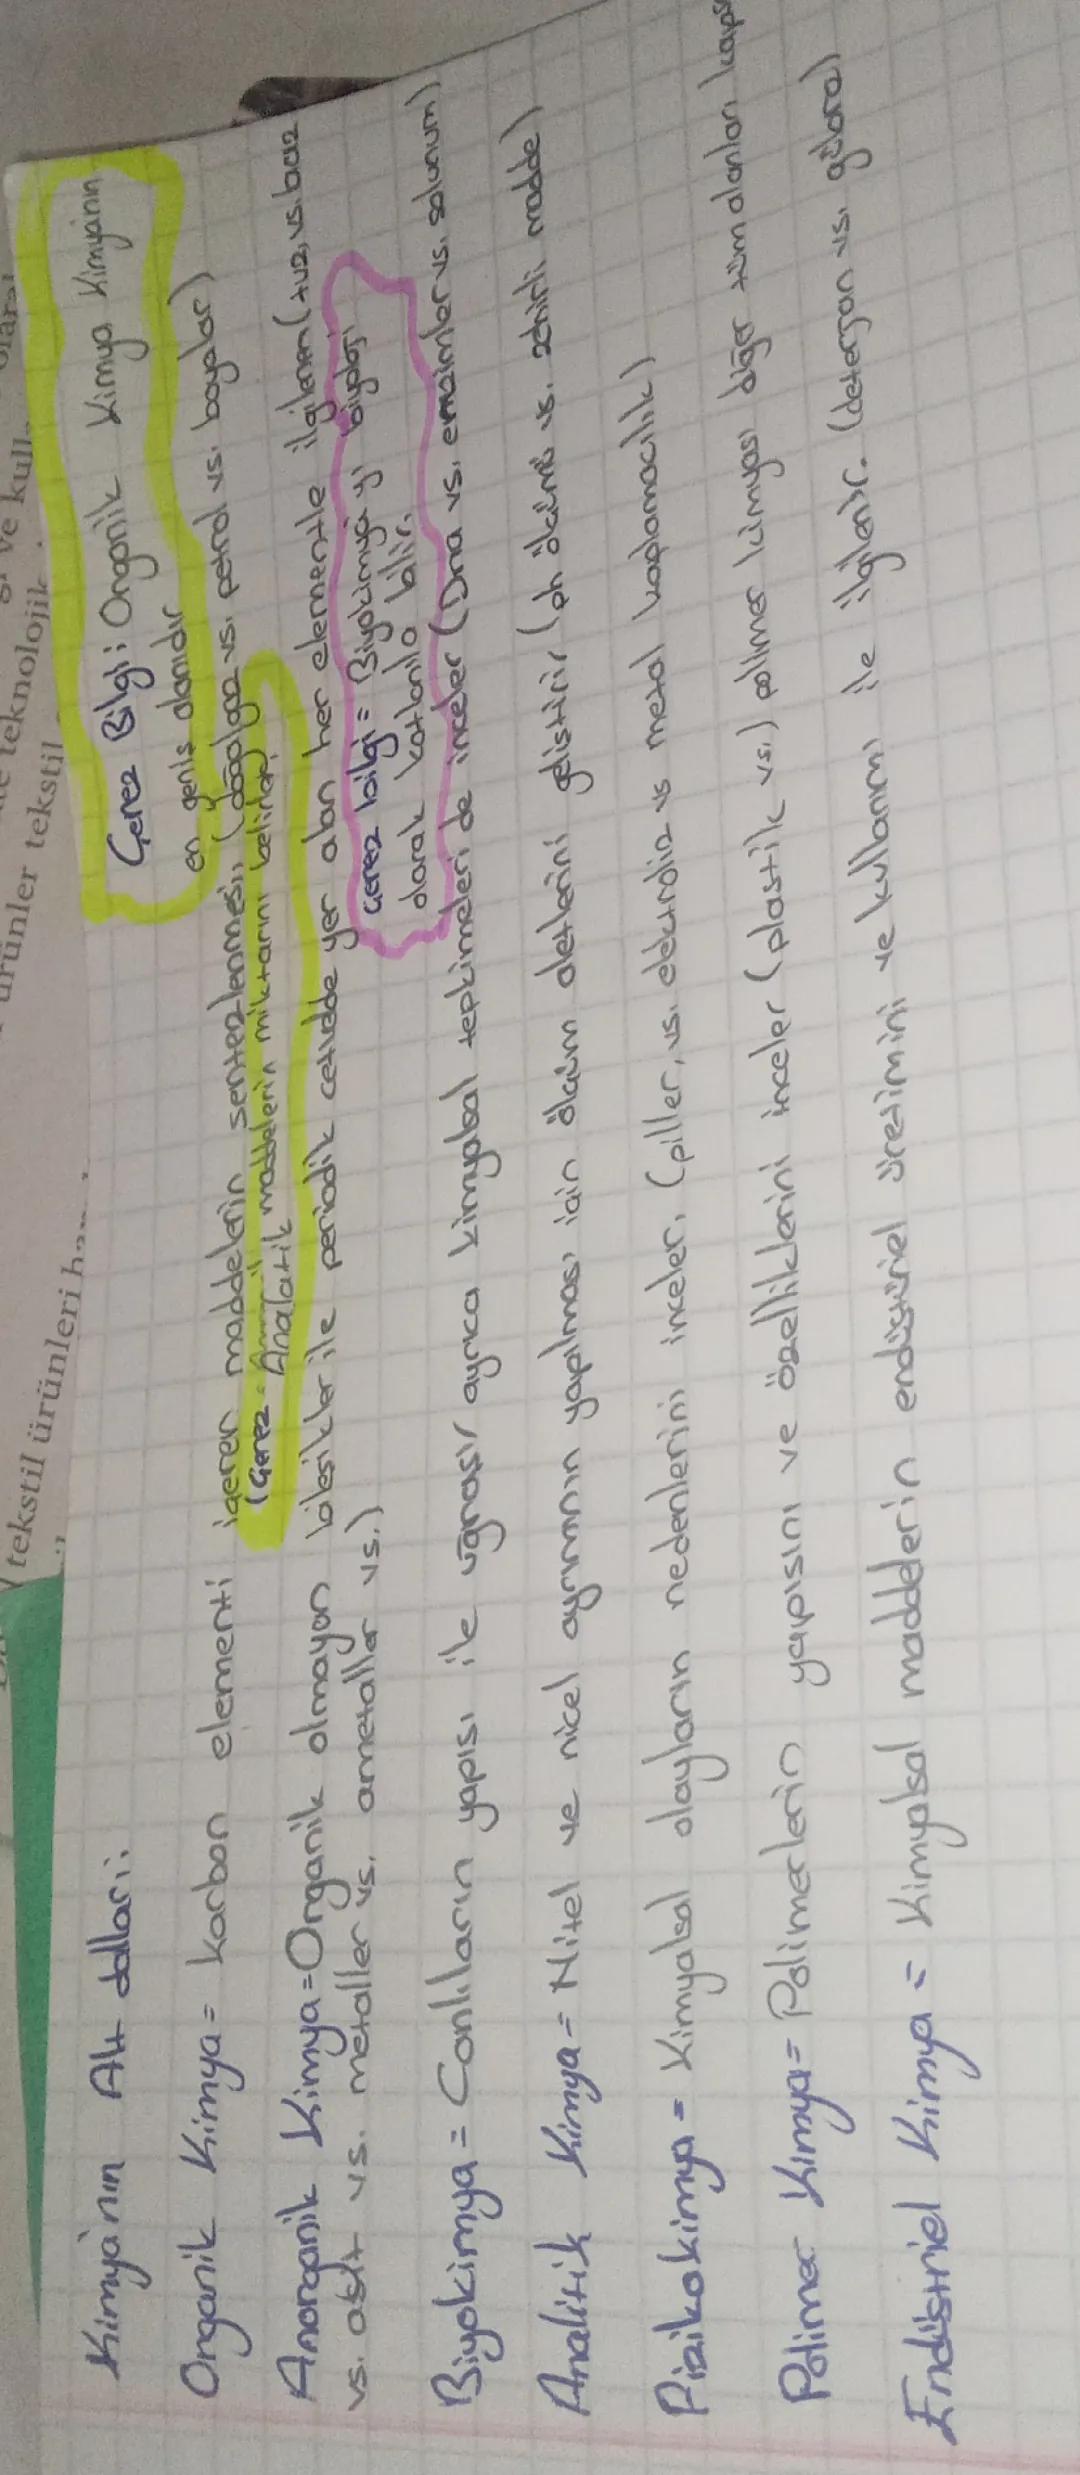 ürünler tekstil
tekstil ürünleri
Kimya'nın Alt dalları:
Gerez Bilgi: Organik Kimya Kimyanın
en geniş alanıdır
Organik Kimya = karbon elementi içeren maddelerin sentezlenmesi, (doğalgaz vs. petrol vs. boyalar)
(Gerez = Analatik maddelerin miktarını belirler)
Anorganik Kimya = Organik olmayan bileşikler ile periodik cetvelde yer alan her elementle ilgilenen (tuz, vs. baz
vs. asit vs. metaller vs. ametaller vs.)
Gerez bilgi = Biyokimya yı biyoloji
olarak katlanıla bilir.
Biyokimya = Canlıların yapısı ile uğraşır ayrıca kimyalsal tepkimeleri de inceler (Dna vs. enzimler vs. solunum)
Analitik Kimya = Nitel ve nicel ayrımının yapılması için ölçüm aletlerini geliştirir (ph ölçümü vs. zehirli madde)
Fizikokimya = Kimyalsal olayların nedenlerini inceler. (piller, vs. elektroliz vs metal kaplamacılık)
Polimer Kimya = Polimerlerin yapısını ve özelliklerini inceler (plastik vs.) polimer kimyası diğer tüm alanları
Endüstriel Kimya = Kimyalsal maddelerin endüstüriel üretimini ve kullanımı ile ilgilenir. (deterjan vs.